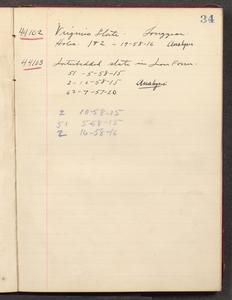 34
44102 Virginia Slate.
Holes 1 & 2 - 19-58-16 Analyze
44103 Interbedded slate in Iron Form.
51 - 5-58-15
2 - 16-58-15 Analyze
62-7-57-20
2 10-58-15
51 5-58-15
2 16-58-16